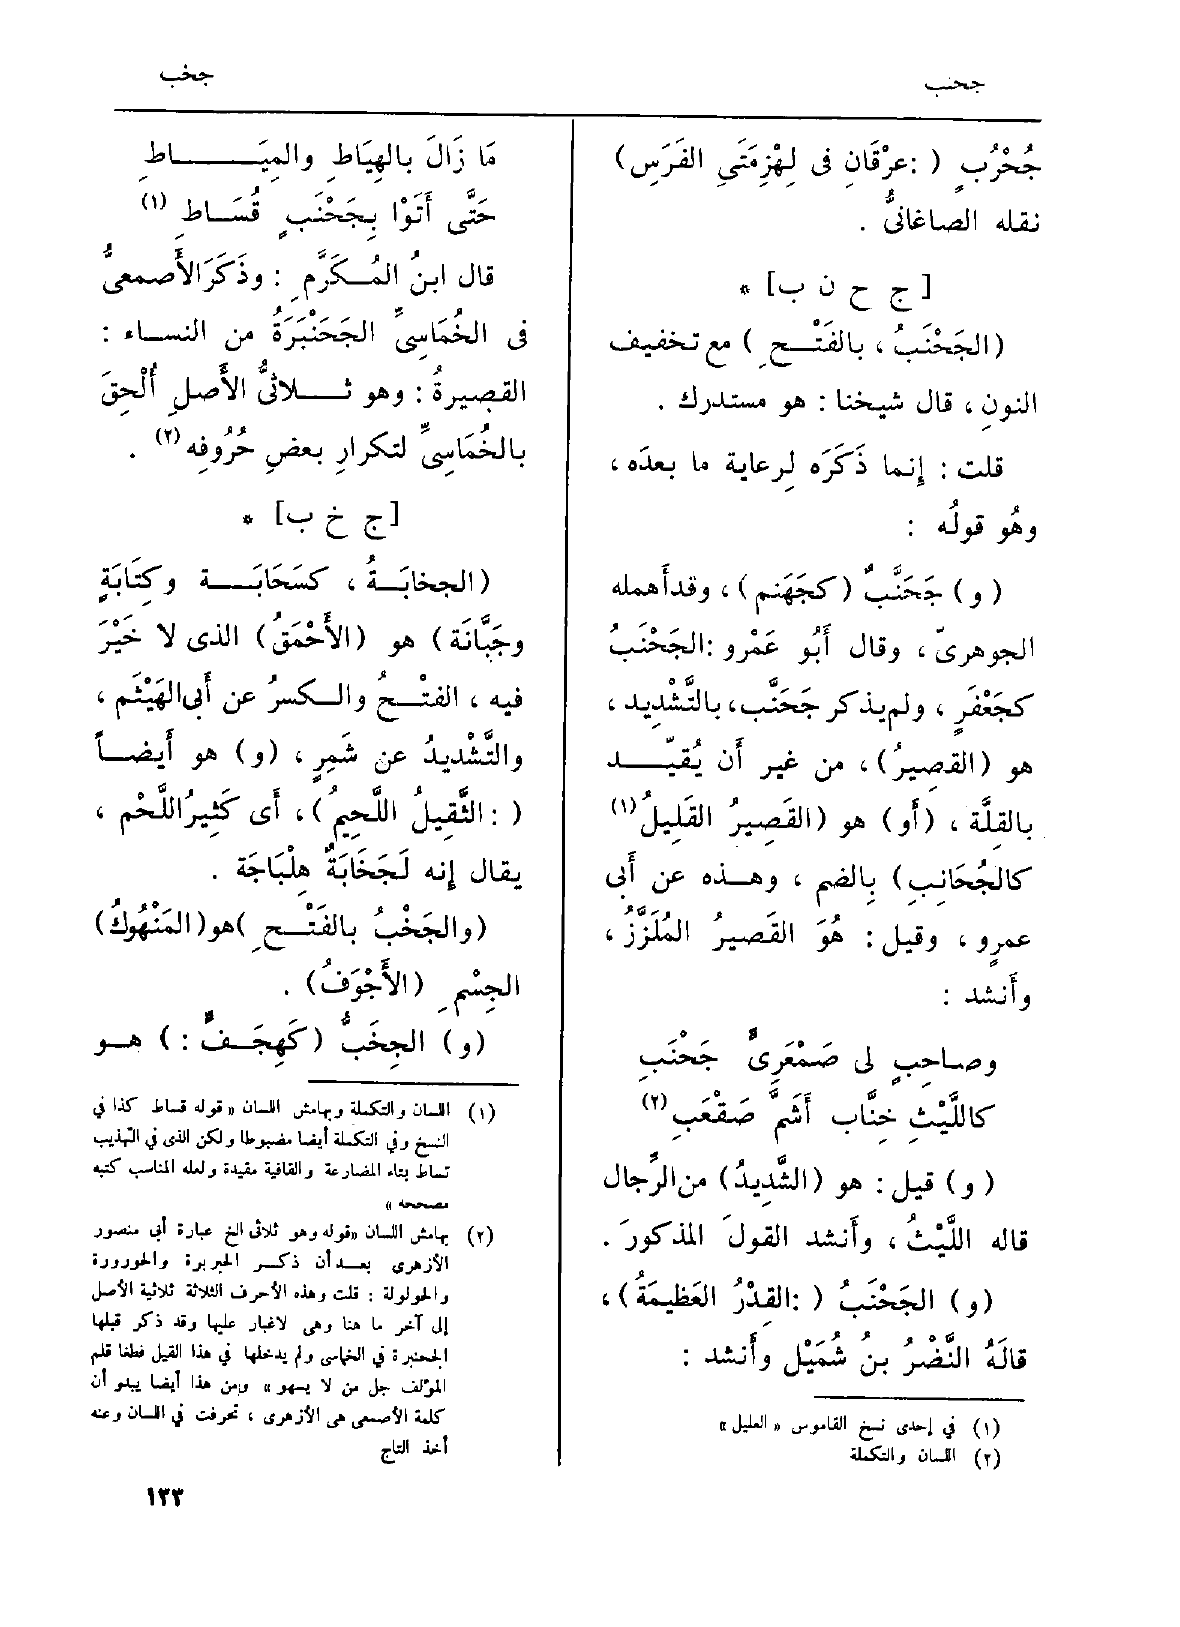 جحنب
جُحْرُبٍ ( :عرْقَانِ فى لِهْزِمَتَىِ الفَرَس)
نقله الصاغانىُّ .
[ ج ح ن ب] *
(الجَحْنَبُ ، بالفَتْـح ِ ) مع تخفيف
النون ، قال شيخنا : هو مستدرك .
قلت : إِنما ذَكَرَه لِرعاية ما بعدَه ،
وهُو قولُه :
( و ) جَحَنَّبٌ (كجَهَنم ) ، وقد أهمله
الجوهرىّ ، وقال أَبُو عَمْرو :الجَحْنَبُ
كجَعْفَرٍ ، ولم يذكر جَحَنَّب، بالتَّشديد ،
هو (القصِيرُ) ، من غير أَن يُقيّـــد
بالقِلَّة ، (أَو) هو (القَصِيرُ القَلِيلُ(١)
كالجُحَانِبِ) بالضم ، وهـذه عن أَبى
عمرٍو ، وقيل : هُوَ القَصِيرُ المُلَزَّزُ ،
وأَنشد :
وصاحِبٍ لى صَمْعَرِىٍّ جَحْنَبِ
كاللَّيْثِ خِنَّاب أَشَمَّ صَقْعَبِ(٢)
( و ) قيل : هو (الشَّدِيدُ) من الرِّجال
قاله اللَّيْثُ ، وأَنشد القولَ المذكورَ .
(و) الجَحْنَبُ ( :القِدْرُ العَظِيمَةُ) ،
قالَهُ النَّضْرُ بن شُمَيْل وأَنشد :
(١) في إحدى نسخ القاموس « العليل »
(٢) اللسان والتكملة
جخب
مَا زَالَ بالهِيَاطِ والمِيَـــــاطِ
حَتَّى أَتَوْا بِجَحْنَبٍ قُسَــاطِ (١)
قال ابنُ المُـكَرَّم ِ : وذَكَرَ الأَصمعىُّ
فى الخُمَاسِىِّ الجَحَنْبَرَةُ من النســاء :
القصِيرةُ : وهو ثـــلاثىُّ الأَصلِ أُلْحِقَ
بالخُمَاسِىِّ لتكرارِ بعضِ حُرُوفِه (٢) .
[ج خ ب] *
(الجخابَــةُ ، كسَحَابَــــة وكِتابَةٍ
وجَبَّانَة) هو (الأَحْمَقُ) الذى لا خَيْرَ
فيه ، الفتْـحُ والـكسرُ عن أَبى الهَيْثَم ،
والتَّشْدِيدُ عن شَمِرٍ ، (و) هو أَيضـاً
( :الثَّقِيلُ اللَّحِيمُ) ، أَى كَثِيرُ اللَّحْم ،
يقال إِنه لَجَخَابَةٌ هِلْبَاجَة .
(والجَخْبُ بالفَتْـح ِ )هو(المَنْهُوكُ)
الجِسْم ِ (الأَجْوَفُ) .
(و) الجِخَبُّ (كَهِجَـفٍّ : ) هــو
(١) اللسان والتكملة وبهامش اللسان « قوله قساط كذا في
النسخ وفي التكملة أيضا مضبوطا ولكن الذى في التهذيب
تساط بتاء المضارعة والقافية مقيدة ولعله المناسب كتبه
مصححه »
(٢) بهامش اللسان «قوله وهو ثلاثى الخ عبارة أبي منصور
الأزهرى بعد أن ذكر الحبربرة والحورورة
والحولولة : قلت وهذه الأحرف الثلاثة ثلاثية الأصل
إلى آخر ما هنا وهى لا غبار عليها وقد ذكر قبلها
الجحنبرة في الخماسى ولم يدخلها في هذا القيل فطغا قلم
المؤلف جل من لا يسهو » ومن هذا أيضا يبدو أن
كلمة الأصمعى هى الأزهرى ، تحرفت في اللسان وعنه
أخذ التاج
١٣٣